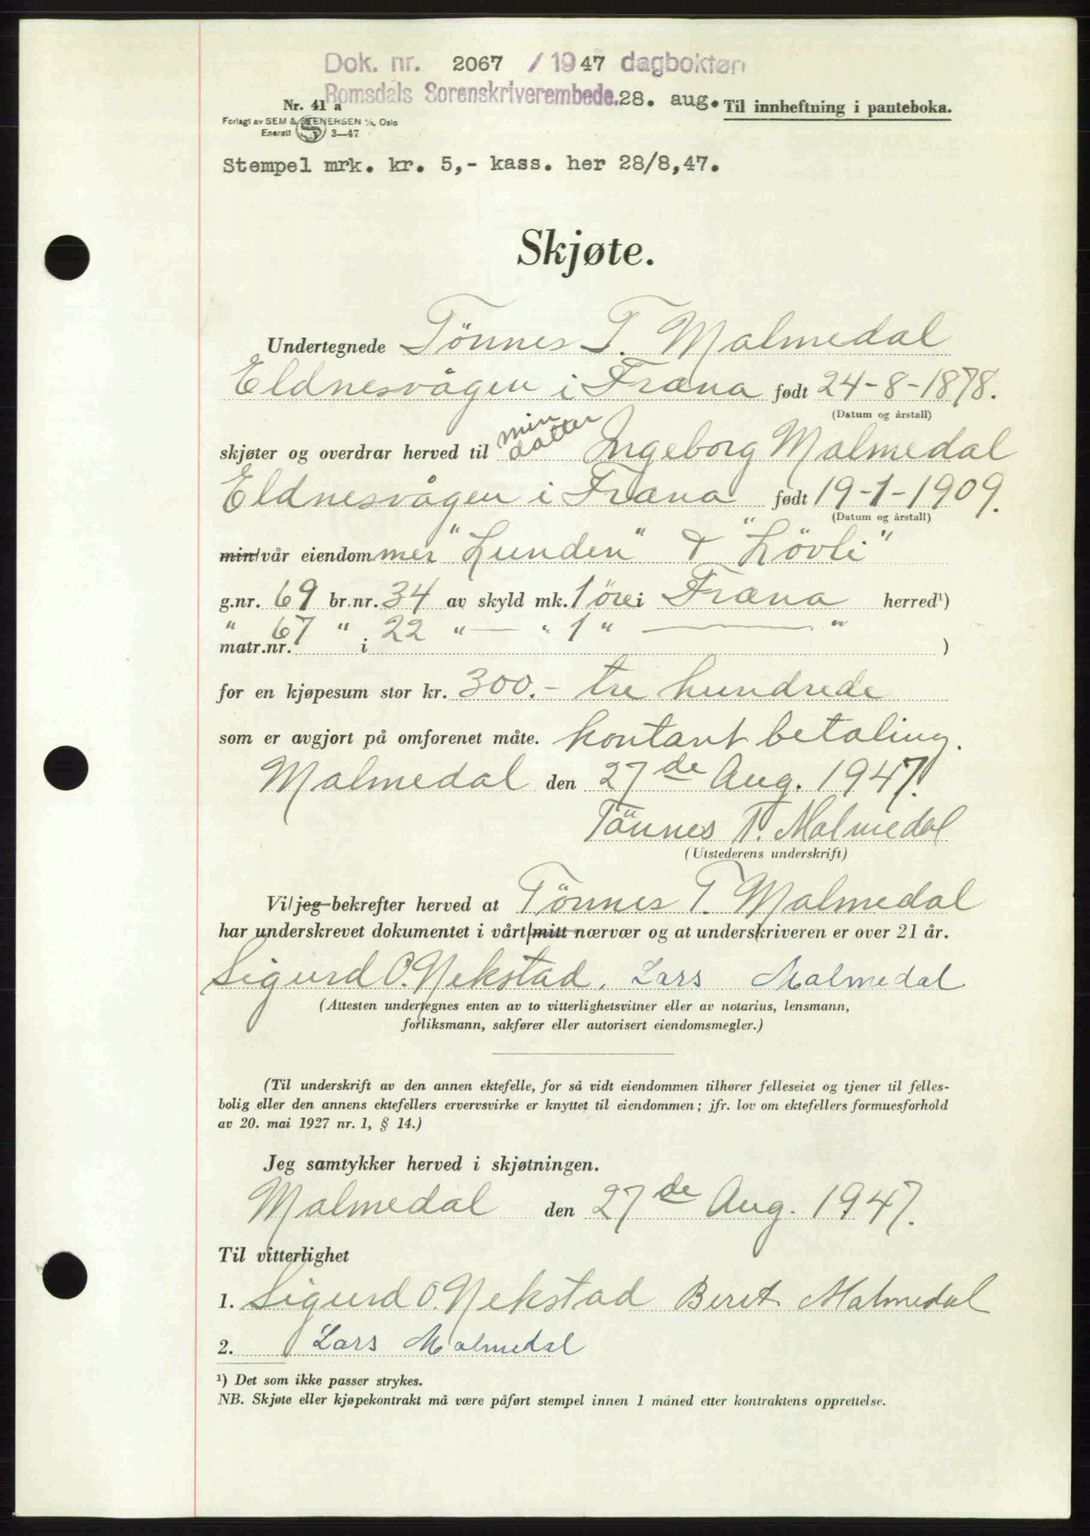 Dok. nr. 2067 / 1947 dagboktøri
Romsdals Sorenskriverembede. 28. aug. Til innheftning i panteboka.
Nr. 41 a
Forlagt av SEM & STENERSEN A/S, Oslo
Enerett S 3—47
Stempel mrk. kr. 5,- kass. her 28/8,47.
Skjøte.
Undertegnede Tönnes T. Malmedal
Eldnesvågen i Fræna født 24-8-1878.
(Datum og årstall)
skjøter og overdrar herved til min datter Ingeborg Malmedal
Eldnesvågen i Fræna født 19-1-1909.
(Datum og årstall)
min/vår eiendommer "Lunden" & "Lövli"
g.nr. 69 br.nr. 34 av skyld mk. 1 öre i Fræna herred¹)
" 67 " 22 " — " 1 " — "
matr.nr. i )
for en kjøpesum stor kr. 300.- tre hundrede
som er avgjort på omforenet måte. kontant betaling.
Malmedal den 27de Aug. 1947.
Tönnes T. Malmedal
(Utstederens underskrift)
Vi/jeg bekrefter herved at Tönnes T. Malmedal
har underskrevet dokumentet i vårt/mitt nærvær og at underskriveren er over 21 år.
Sigurd O. Nekstad. Lars Malmedal
(Attesten undertegnes enten av to vitterlighetsvitner eller av notarius, lensmann,
forliksmann, sakfører eller autorisert eiendomsmegler.)
(Til underskrift av den annen ektefelle, for så vidt eiendommen tilhører felleseiet og tjener til felles-
bolig eller den annens ektefellers ervervsvirke er knyttet til eiendommen; jfr. lov om ektefellers formuesforhold
av 20. mai 1927 nr. 1, § 14.)
Jeg samtykker herved i skjøtningen.
Malmedal den 27de Aug. 1947.
Til vitterlighet
1. Sigurd O. Nekstad Beret Malmedal
2. Lars Malmedal
¹) Det som ikke passer strykes.
NB. Skjøte eller kjøpekontrakt må være påført stempel innen 1 måned etter kontraktens opprettelse.